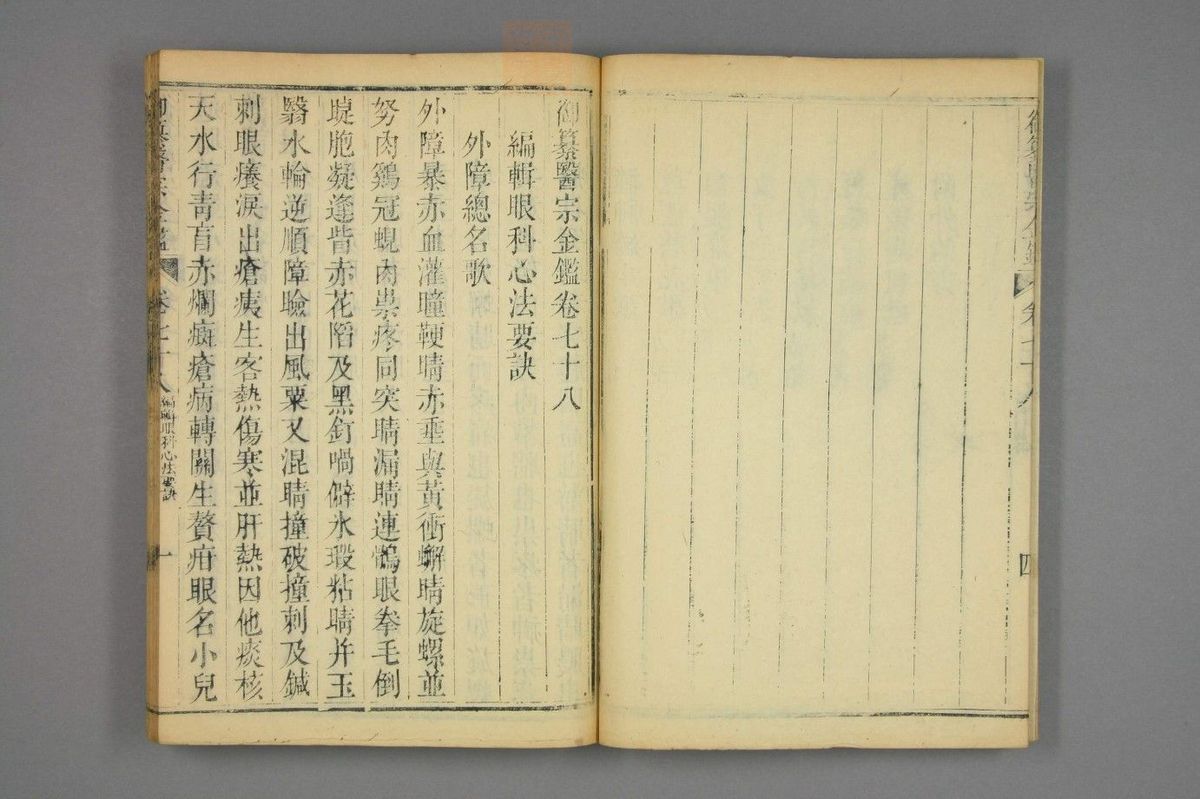 卷七十
四
御纂醫宗金鑑卷七十八
編輯眼科心法要訣
外障總名歌
外障暴赤血灌瞳鞕睛赤垂與黃衝蠏睛旋螺並
努肉鷄冠蜆肉祟疼同突睛漏睛連鶻眼拳毛倒
睫胞凝逢眥赤花陷及黑釘喎僻氷瑕粘睛并玉
翳水輪逆順障瞼出風粟又混睛撞破撞刺及鍼
刺眼癢淚出瘡痍生客熱傷寒並肝熱因他痰核
天水行青盲赤爛癍瘡病轉關生贅疳眼名小兒
御纂醫宗金鑑
卷七十八
編輯眼科心法要訣
一